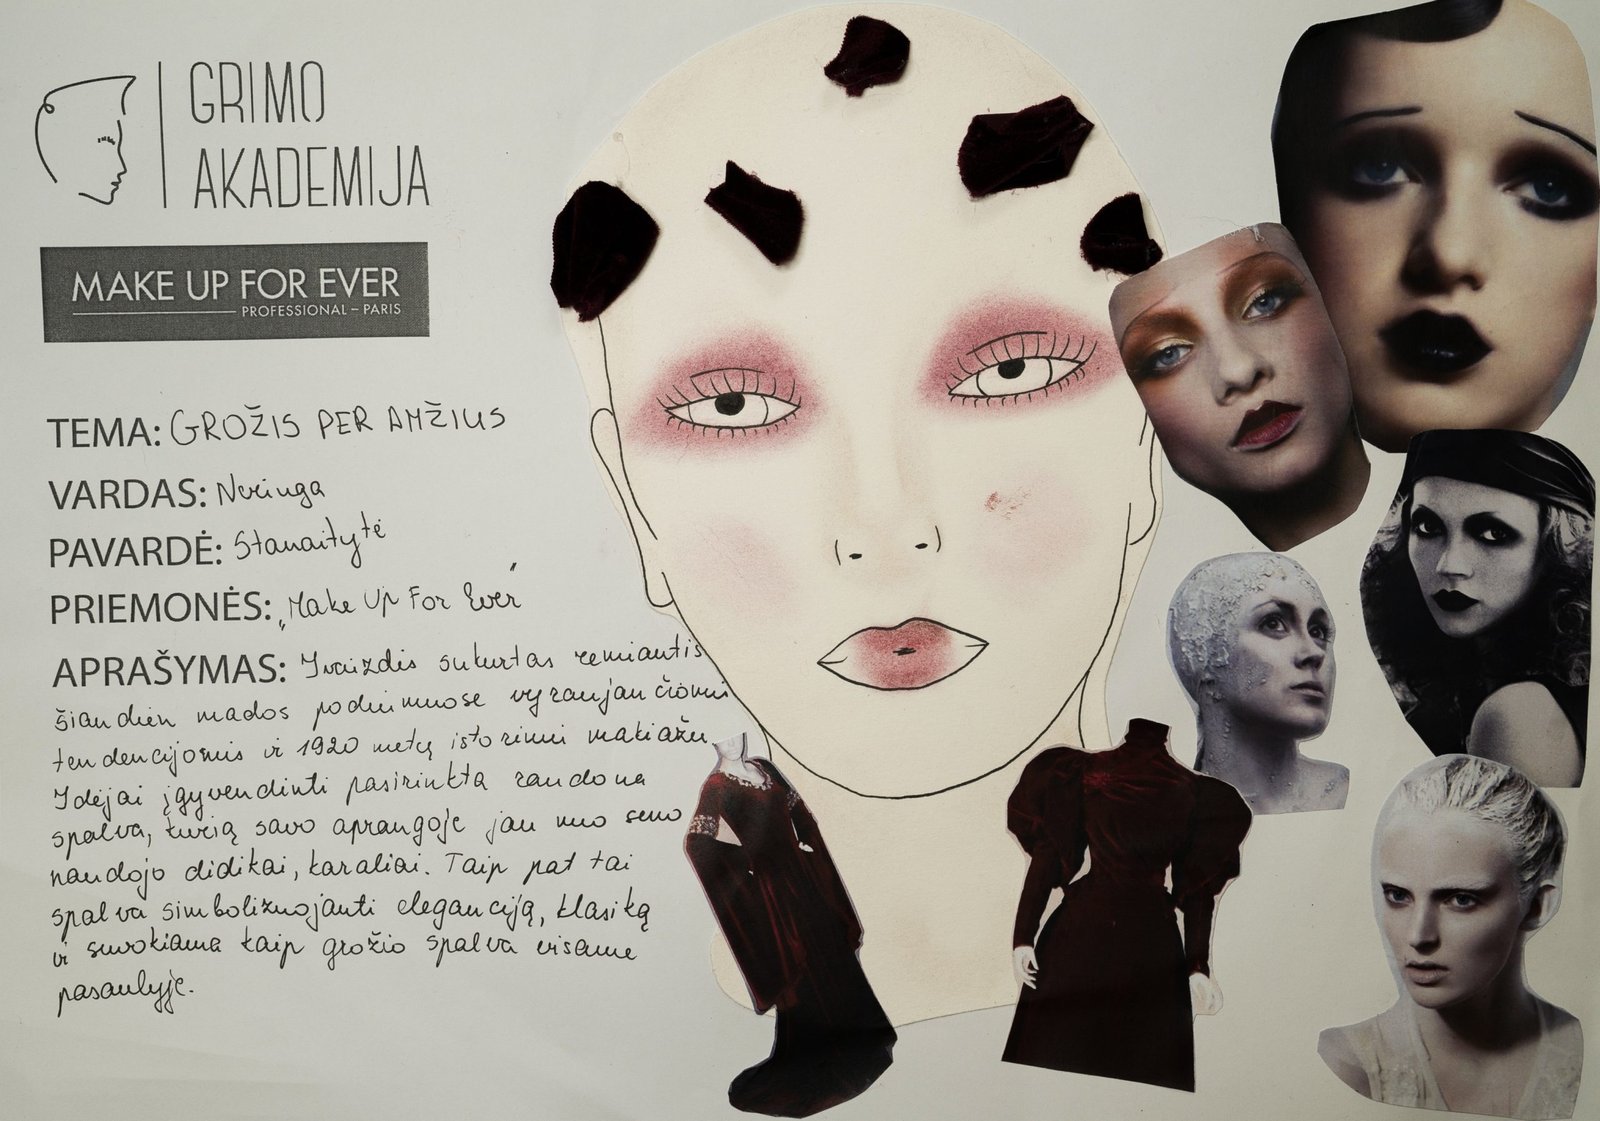 GRIMO
AKADEMIJA
MAKE UP FOR EVER
PROFESSIONAL – PARIS
TEMA: GROŽIS PER AMŽIUS
VARDAS: Neringa
PAVARDĖ: Stanaitytė
PRIEMONĖS: „Make Up For Ever"
APRAŠYMAS: Įvaizdis sukurtas remiantis
šiandien mados podiumuose vyraujančiomis
tendencijomis ir 1920 metų istoriniu makiažu.
Idėjai įgyvendinti pasirinkta raudona
spalva, kurią savo aprangoje jau nuo seno
naudojo didikai, karaliai. Taip pat tai
spalva simbolizuojanti eleganciją, klasiką
ir suvokiama kaip grožio spalva visame
pasaulyje.